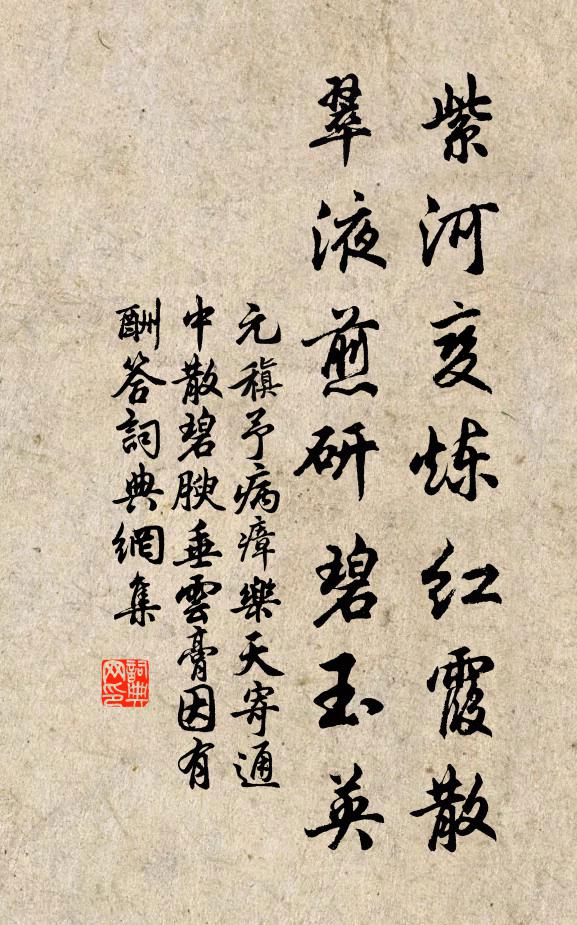 紫河变炼红霞散
翠液煎研碧玉英
元稹予病瘴樂天寄通
中散碧腴垂雲膏因有
酬答詞典網集
詞典
网印